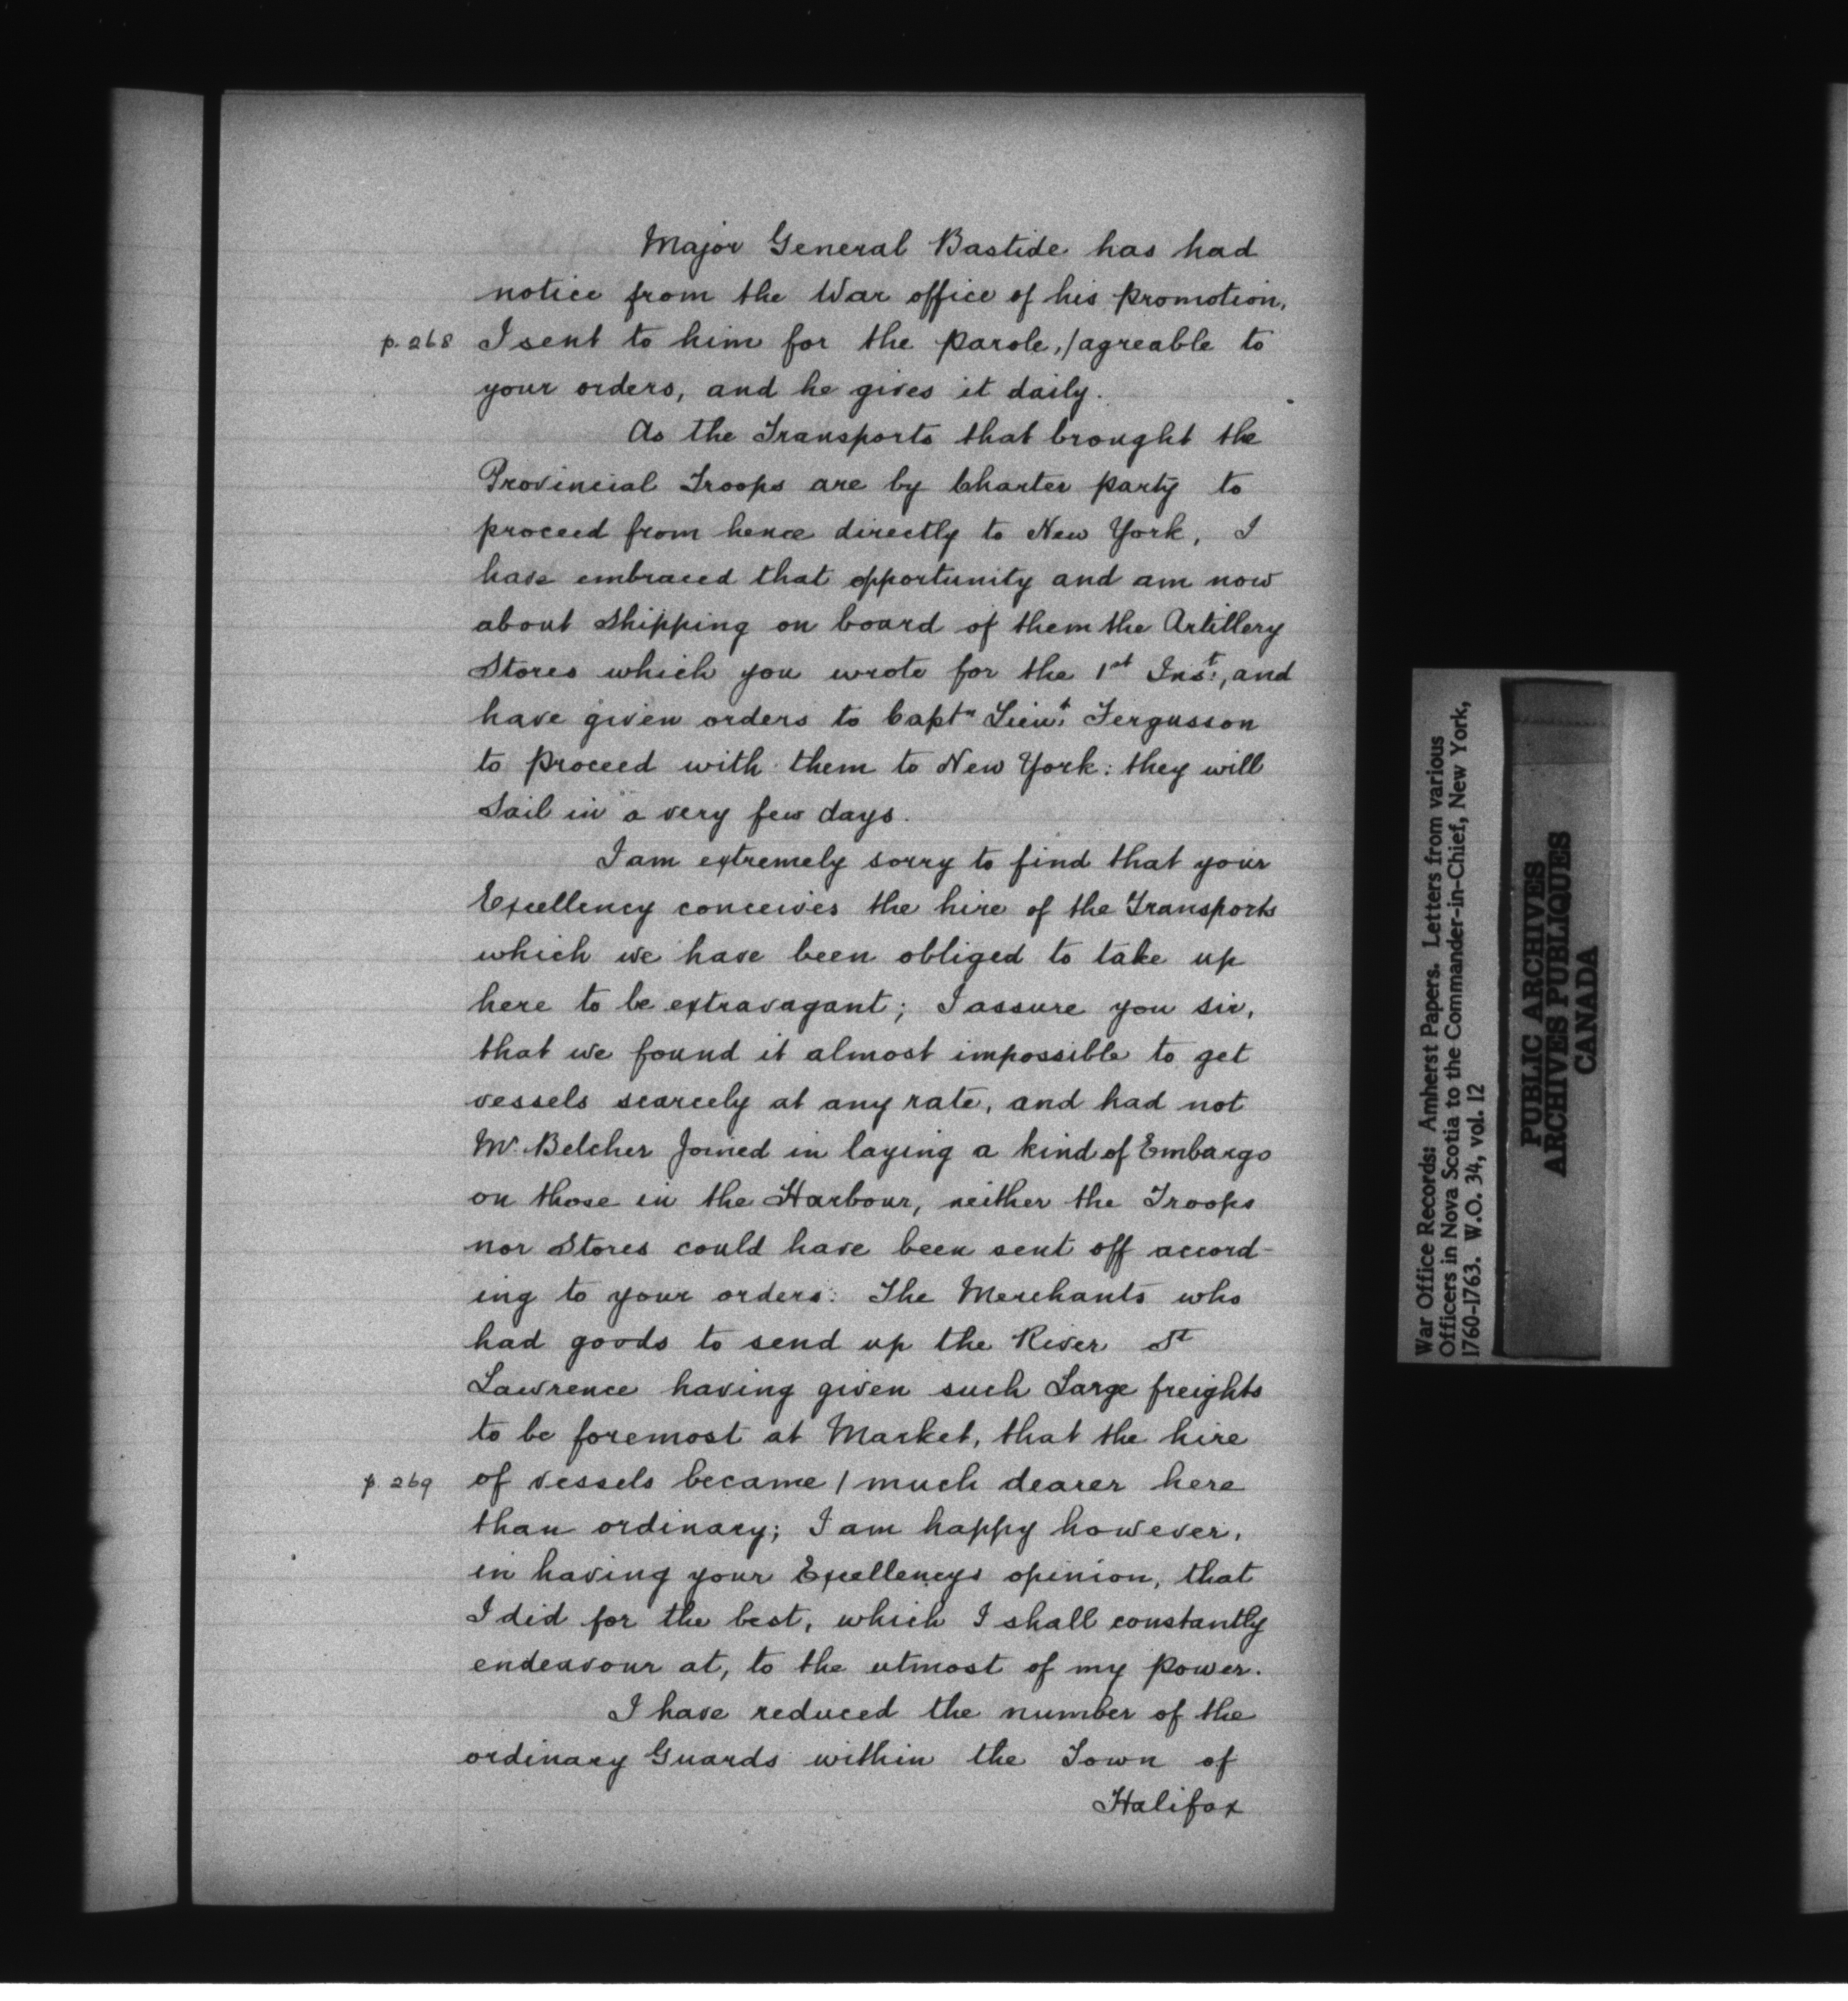 Major General Bastide has had
notice from the War office of his promotion,
p. 268 I sent to him for the parole,/agreable to
your orders, and he gives it daily.
As the Transports that brought the
Provincial Troops are by Charter party to
proceed from hence directly to New York, I
have embraced that opportunity and am now
about shipping on board of them the Artillery
Stores which you wrote for the 1st Inst:, and
have given orders to Captn Lieut. Fergusson
to proceed with them to New York: they will
Sail in a very few days.
I am extremely sorry to find that your
Excellency conceives the hire of the Transports
which we have been obliged to take up
here to be extravagant; I assure you sir,
that we found it almost impossible to get
vessels scarcely at any rate, and had not
Mr. Belcher Joined in laying a kind of Embargo
on those in the Harbour, neither the Troops
nor Stores could have been sent off accord-
ing to your orders: The Merchants who
had goods to send up the River St
Lawrence having given such Large freights
to be foremost at Market, that the hire
p. 269 of vessels became / much dearer here
than ordinary; I am happy however,
in having your Excellencys opinion, that
I did for the best, which I shall constantly
endeavour at, to the utmost of my power.
I have reduced the number of the
ordinary Guards within the Town of
Halifax
War Office Records: Amherst Papers. Letters from various
Officers in Nova Scotia to the Commander-in-Chief, New York,
1760-1763. W.O. 34, vol. 12
PUBLIC ARCHIVES
ARCHIVES PUBLIQUES
CANADA